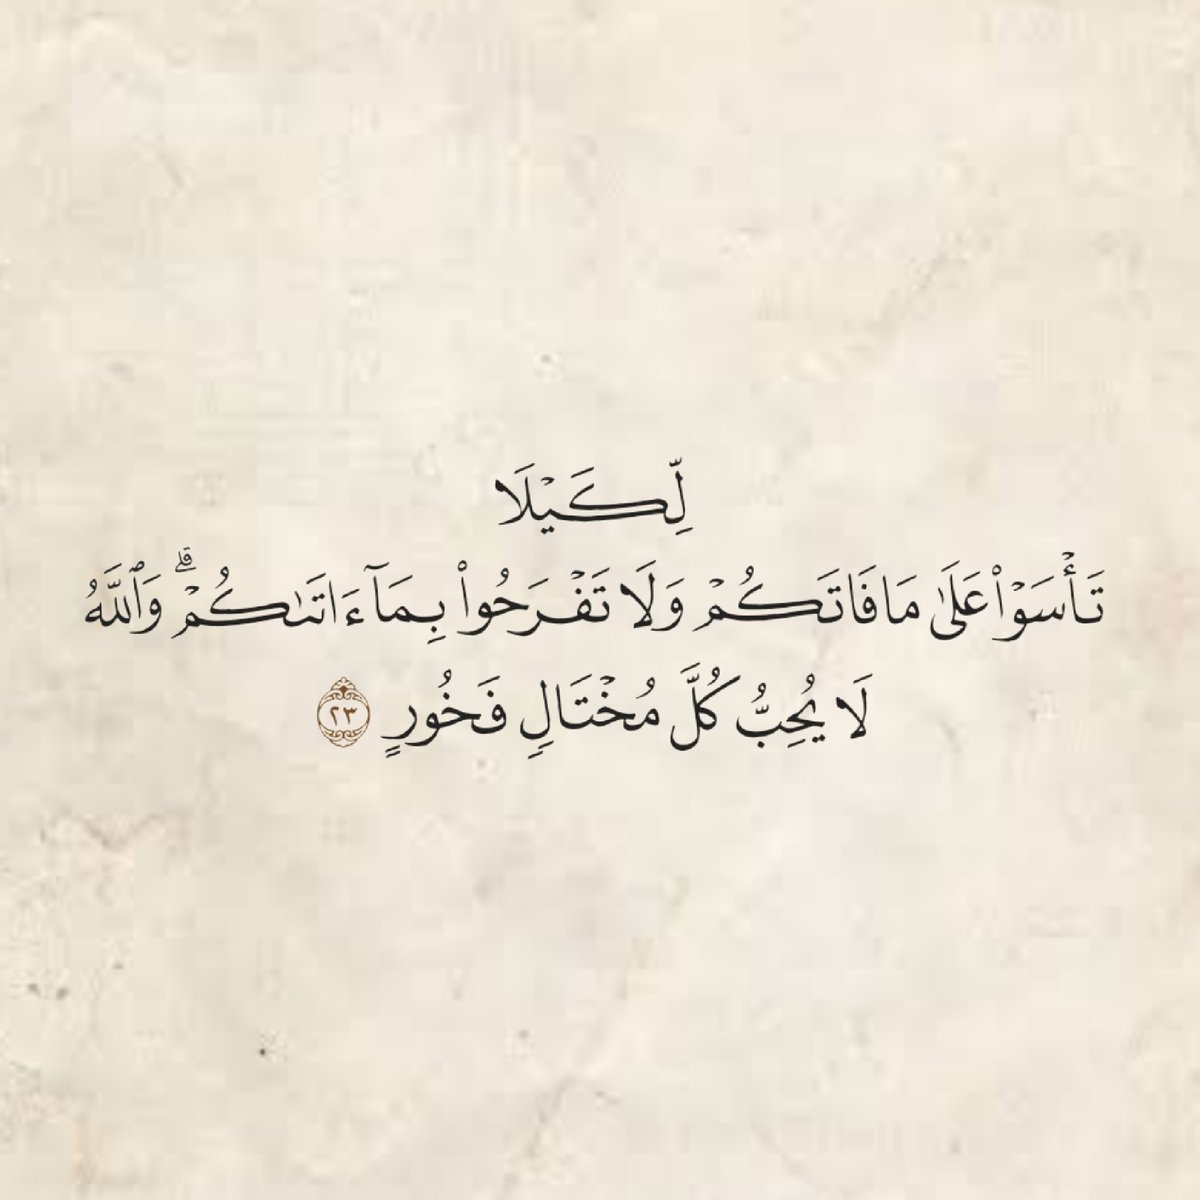 لِّكَيۡلَا
تَأۡسَوۡاْ عَلَىٰ مَا فَاتَكُمۡ وَلَا تَفۡرَحُواْ بِمَآ ءَاتَىٰكُمۡۗ وَٱللَّهُ
لَا يُحِبُّ كُلَّ مُخۡتَالٖ فَخُورٍ ٢٣